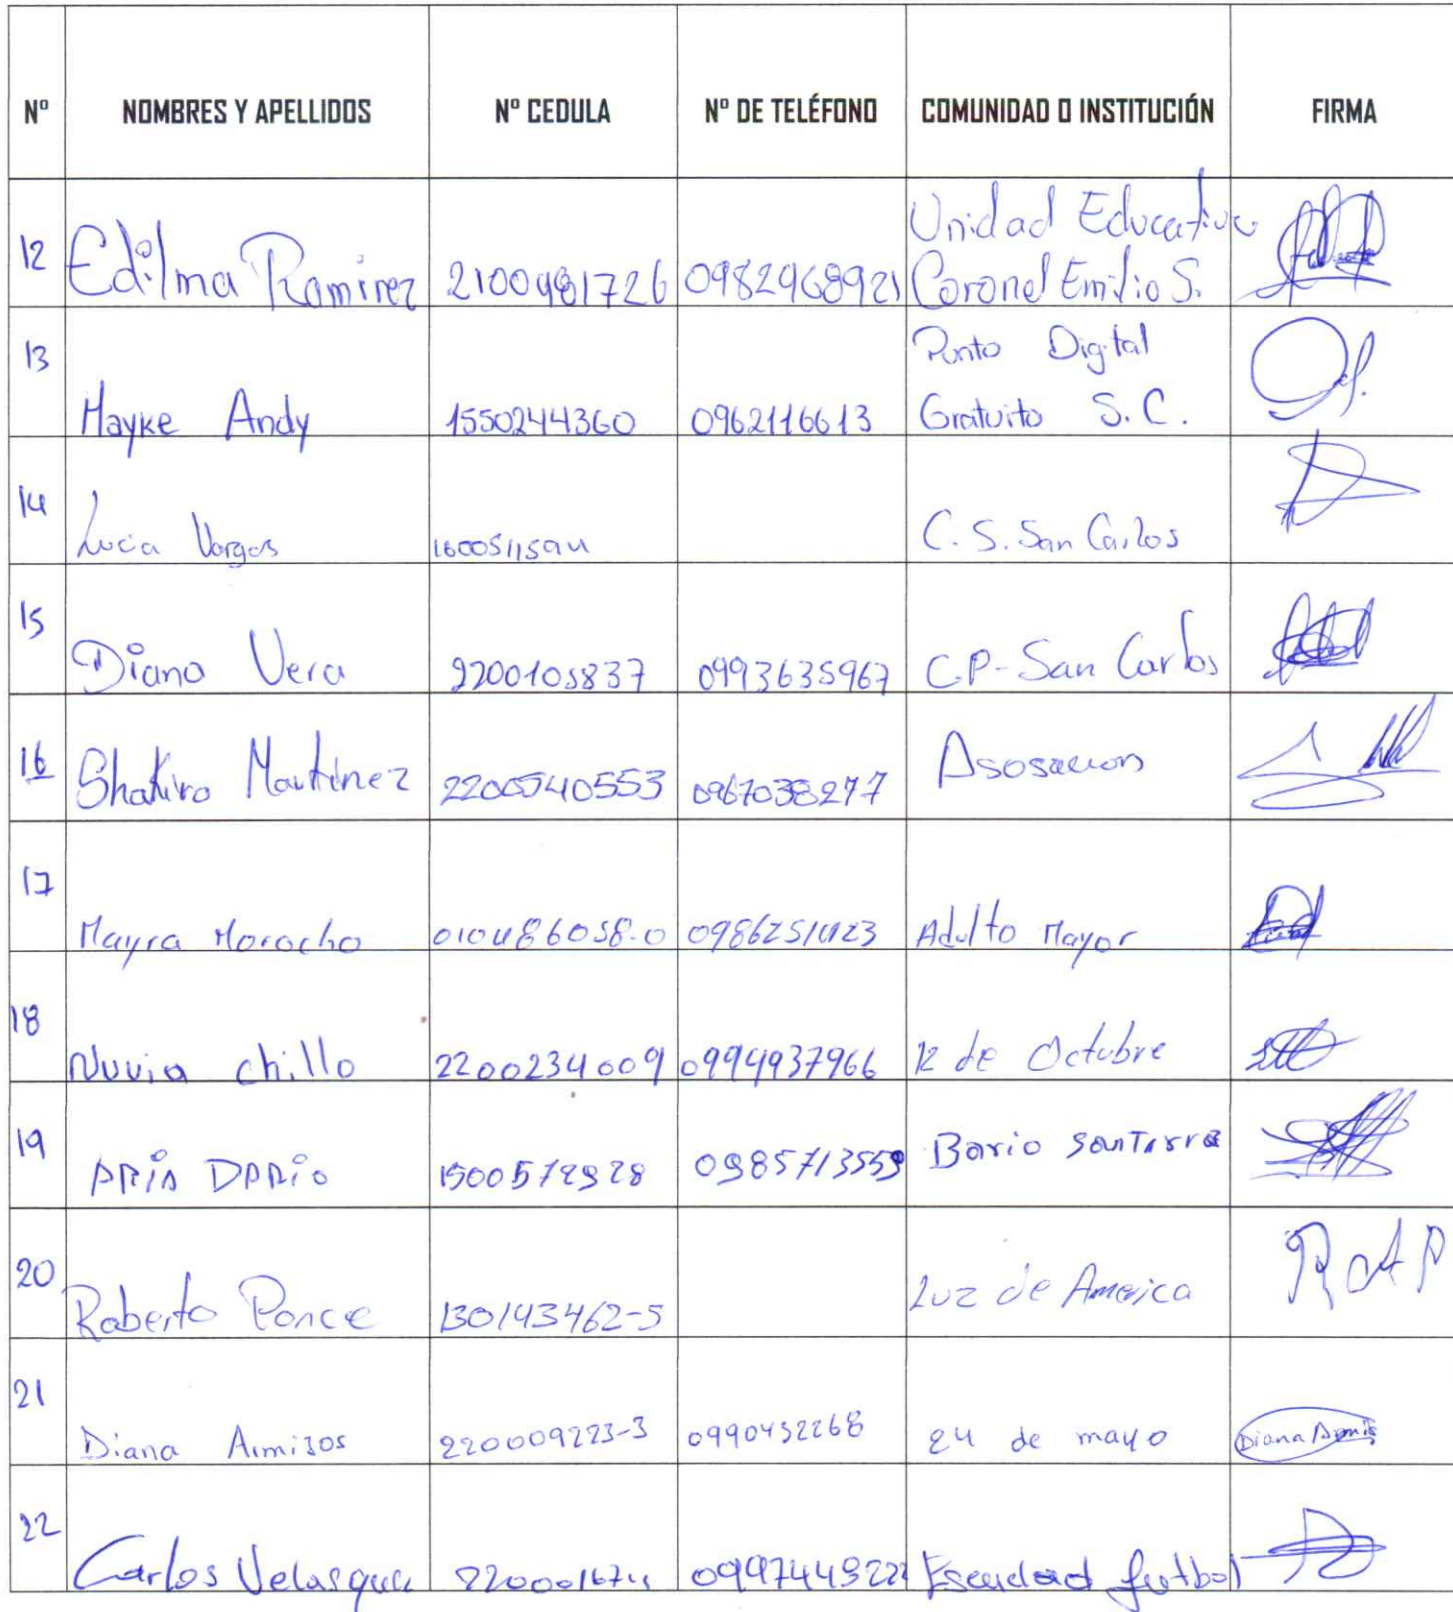 Nº NOMBRES Y APELLIDOS Nº CEDULA Nº DE TELÉFONO COMUNIDAD O INSTITUCIÓN FIRMA
12 Edilma Ramirez 2100481726 0982968921 Unidad Educativa
Coronel Emilio S.
13 Mayke Andy 1550244360 0962116613 Punto Digital
Gratuito S.C.
14 Lucia Vargas 1600511594 C.S. San Carlos
15 Diana Vera 2200105837 0993635967 C.P-San Carlos
16 Shakira Martinez 2200540553 0967038277 Asosacion
17 Mayra Morocho 010486058-0 0986251423 Adulto Mayor
18 Nuvia chillo 2200234009 0994937966 12 de Octubre
19 ARIA DARIO 1500572928 0985713559 Bario
20 Roberto Ponce 130143462-5 Luz de America RAP
21 Diana Armijos 220009223-3 0990432268 24 de mayo Diana
22 Carlos Velasquez 0997449222 futbol